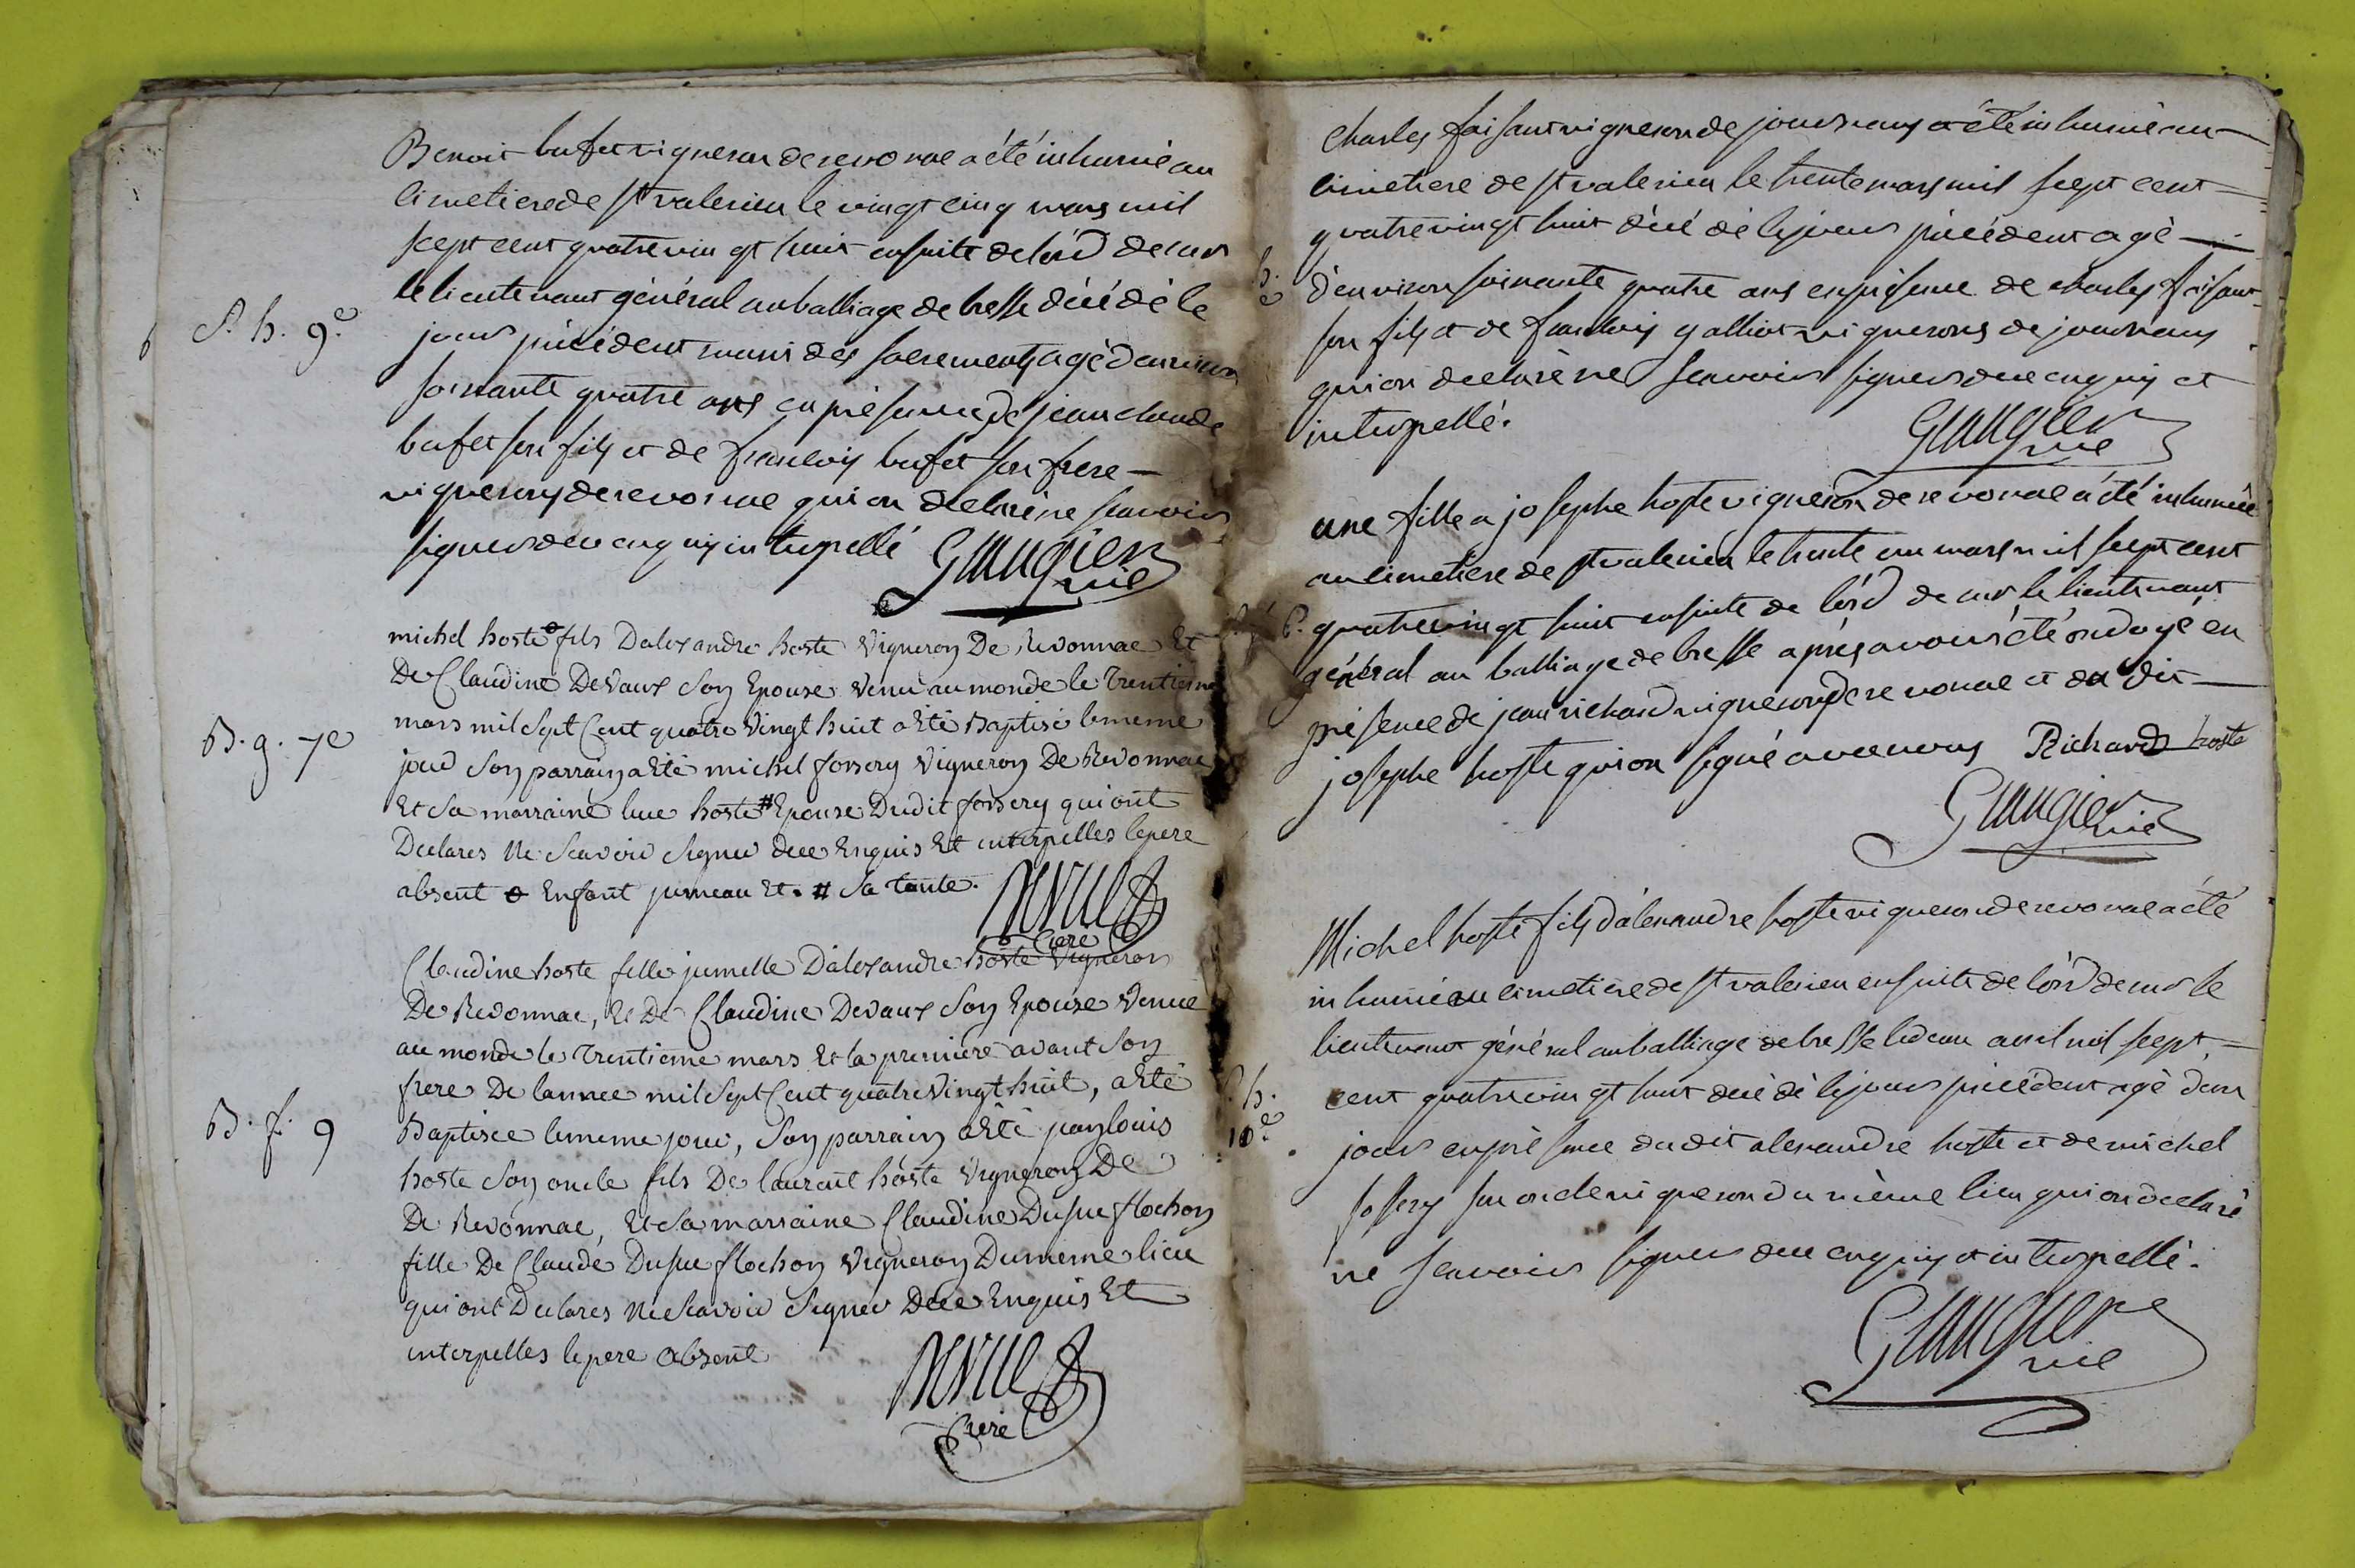 Benoit bufet vigneron de revonnac a été inhumé au
S. h. 9e
cimetiere de st valerien le vingt cinq mars mil
sept cent quatre vingt huit ensuite de l'ord de mr
le lieutenant général au balliage de bresse décédé le
jour précédent muni des sacrements agé d'environ
soixante quatre ans en présence de jean claude
bufet son fils et de francois bufet son frere —
vignerons de revonnac qui on déclaré ne scavoir
signer de ce enquis interpellé Grangier
vic
michel hoste ɵ fils Dalexandre hoste Vigneron De Revonnac Et
De Claudine Devaux Son Epouse Venu au monde le Trentieme
B. g. 7e
mars mil Sept Cent quatre Vingt huit a Eté Baptisé le meme
jour Son parrain a Eté michel fossery Vigneron De Revonnac
Et Sa marraine hoste # Epouse Dudit fossery qui ont
Declares Ne Scavoir Signer dece Enquis Et interpelles le pere
absent ɵ Enfant jumeau Et. # Sa tante.
Curé
Claudine hoste fille jumelle D'alexandre hoste Vigneron
De Revonnac, Et De Claudine Devaux Son Epouse Venue
au monde le Trentieme mars Et la premiere avant Son
frere De lannee mil Sept Cent quatre Vingt huit, a Eté
B. f. 9
Baptisée le meme jour, Son parrain a Eté louis
hoste Son oncle fils De laurent hoste Vigneron De
De Revonnac, Et Sa marraine Claudine Dusuc flochon
fille De Claude Dusuc flochon Vigneron Du meme lieu
qui ont Declares Ne Scavoir Signer Dece Enquis Et
interpelles le pere absent
Curé
Charles faisant vigneron de journans a été inhumé au —
cimetiere de st valerien le trente mars mil sept cent =
quatre vingt huit décédé le jour précédent agé —
d'environ soixante quatre ans en présence de charles faisant
son fils et de francois galliot vignerons de journans
qui on declaré ne scavoir signer de ce enquis et
interpellé.
Grangier
vic
une fille a josephe hoste vigneron de revonnac a été inhumée
au cimetiere de st valerien le trente un mars mil sept cent
quatre vingt huit ensuite de l'ord de mr le lieutenant
général au balliage de bresse après avoir été ondoyé en
présence de jean richard vigneron de revonnac et du dit —
josephe hoste qui on signé avec nous Richard hoste
Grangier vic
Michel hoste fils d'alexandre hoste vigneron de revonnac a été
inhumé au cimetiere de st valerien ensuite de l'ord de mr le
lieutenant général au balliage de bresse le deux avril mil sept =
S. h.
10e
cent quatre vingt huit décédé le jour précédent agé deux
jours en présence du dit alexandre hoste et de michel
fossery son oncle vigneron du même lieu qui on declaré
ne scavoir signer de ce enquis et interpellé.
Grangier
vic